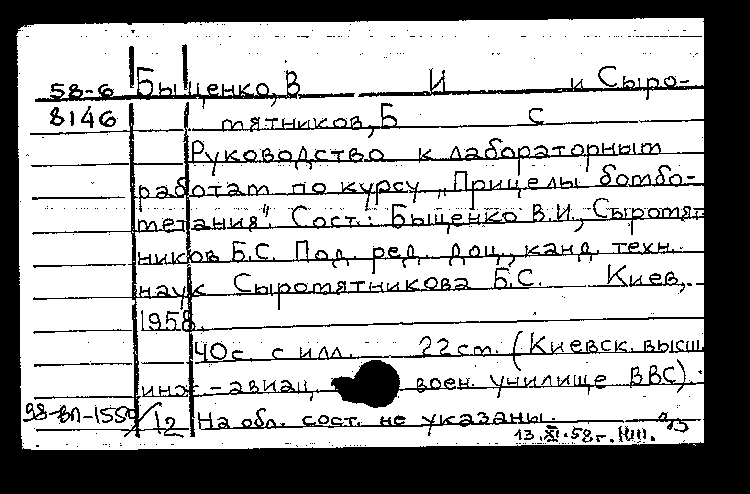 58-6 Быщенко, В И и Сыро-
8146 мятников, Б С
Руководство к лабораторным
работам по курсу „Прицелы бомбо-
метания". Сост.: Быщенко В.И., Сыромят
ников Б.С. Под. ред. доц., канд. техн.
наук Сыромятникова Б.С. Киев,
1958.
40с. с илл. 22см. (Киевск. высш
инж-авиац. воен. училище ВВС).
58-вп-1559/12 На обл. сост. не указаны.
13.XI.58г.